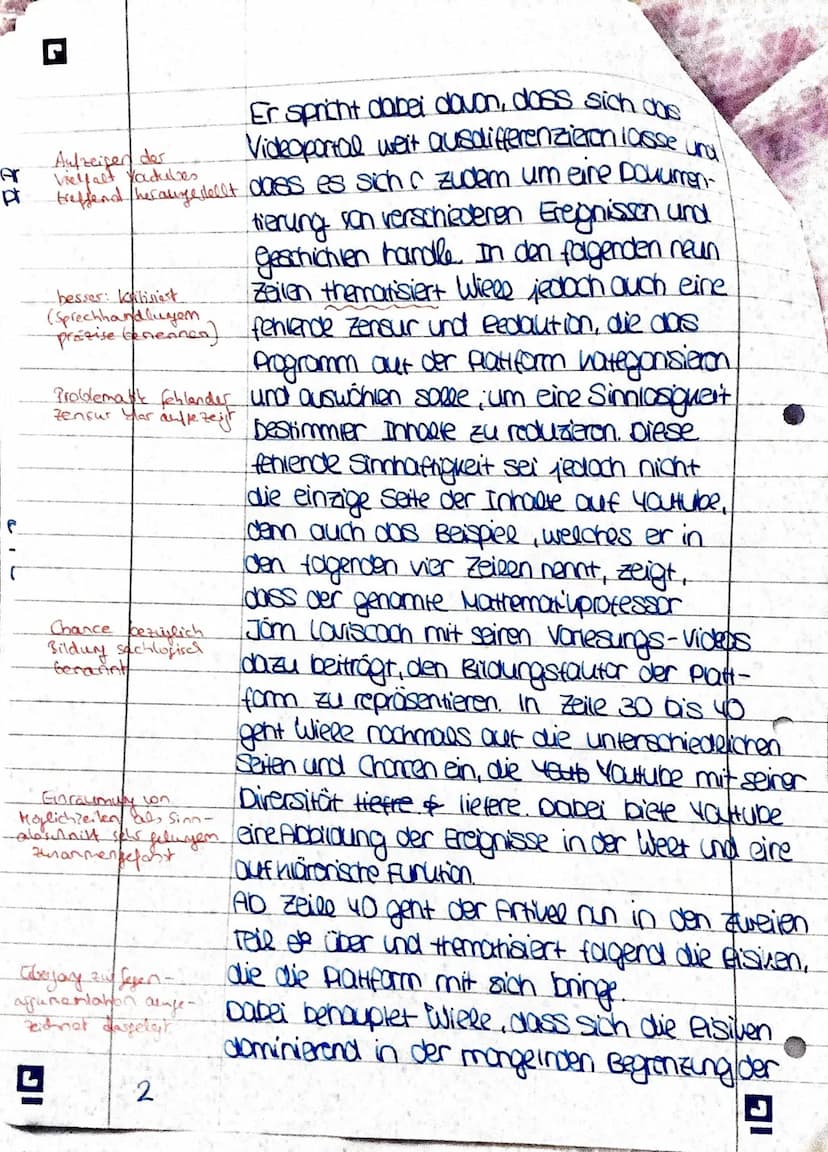 Er spricht dabei davon, dass sich das
Aufzeigen der
Vielfalt Youtubes
treffend herausgestellt
Videoportal weit ausdifferenzieren lasse und
dass es sich zudem um eine Dokumen-
tierung von verschiedenen Ereignissen und
Geschichten handle. In den folgenden neun
besser: kritisiert
(Sprechhandlungen
präzise benennen)
Zeilen thematisiert Wiele jedoch auch eine
fehlende Zensur und Redaktion, die das
Programm auf der Plattform kategorisieren
Problematik fehlender
Zensur klar aufgezeigt
und auswählen solle, um eine Sinnlosigkeit
bestimmter Inhalte zu reduzieren. Diese
fehlende Sinnhaftigkeit sei jedoch nicht
die einzige Seite der Inhalte auf Youtube,
denn auch das Beispiel, welches er in
den folgenden vier Zeilen nennt, zeigt,
dass der genannte Mathematikprofessor
Chance bezüglich
Bildung sachlogisch
benannt
Jörn Loviscach mit seinen Vorlesungs-Videos
dazu beiträgt, den Bildungsfaktor der Platt-
form zu repräsentieren. In Zeile 30 bis 40
geht Wiele nochmals auf die unterschiedlichen
Seiten und Chancen ein, die Youtube mit seiner
Einräumung von
Möglichkeiten als Sinn-
abschnitt sehr gelungen
zusammengefaßt
Diversität liefere. Dabei biete Youtube
eine Abbildung der Ereignisse in der Welt und eine
aufklärerische Funktion.
Ab Zeile 40 geht der Artikel nun in den zweiten
Teil über und thematisiert folgend die Risiken,
Übergang zur Gegen-
argumentation ausge-
zeichnet dargelegt
die die Plattform mit sich bringe.
Dabei behauptet Wiele, dass sich die Risiken
dominierend in der mangelnden Begrenzung der
2